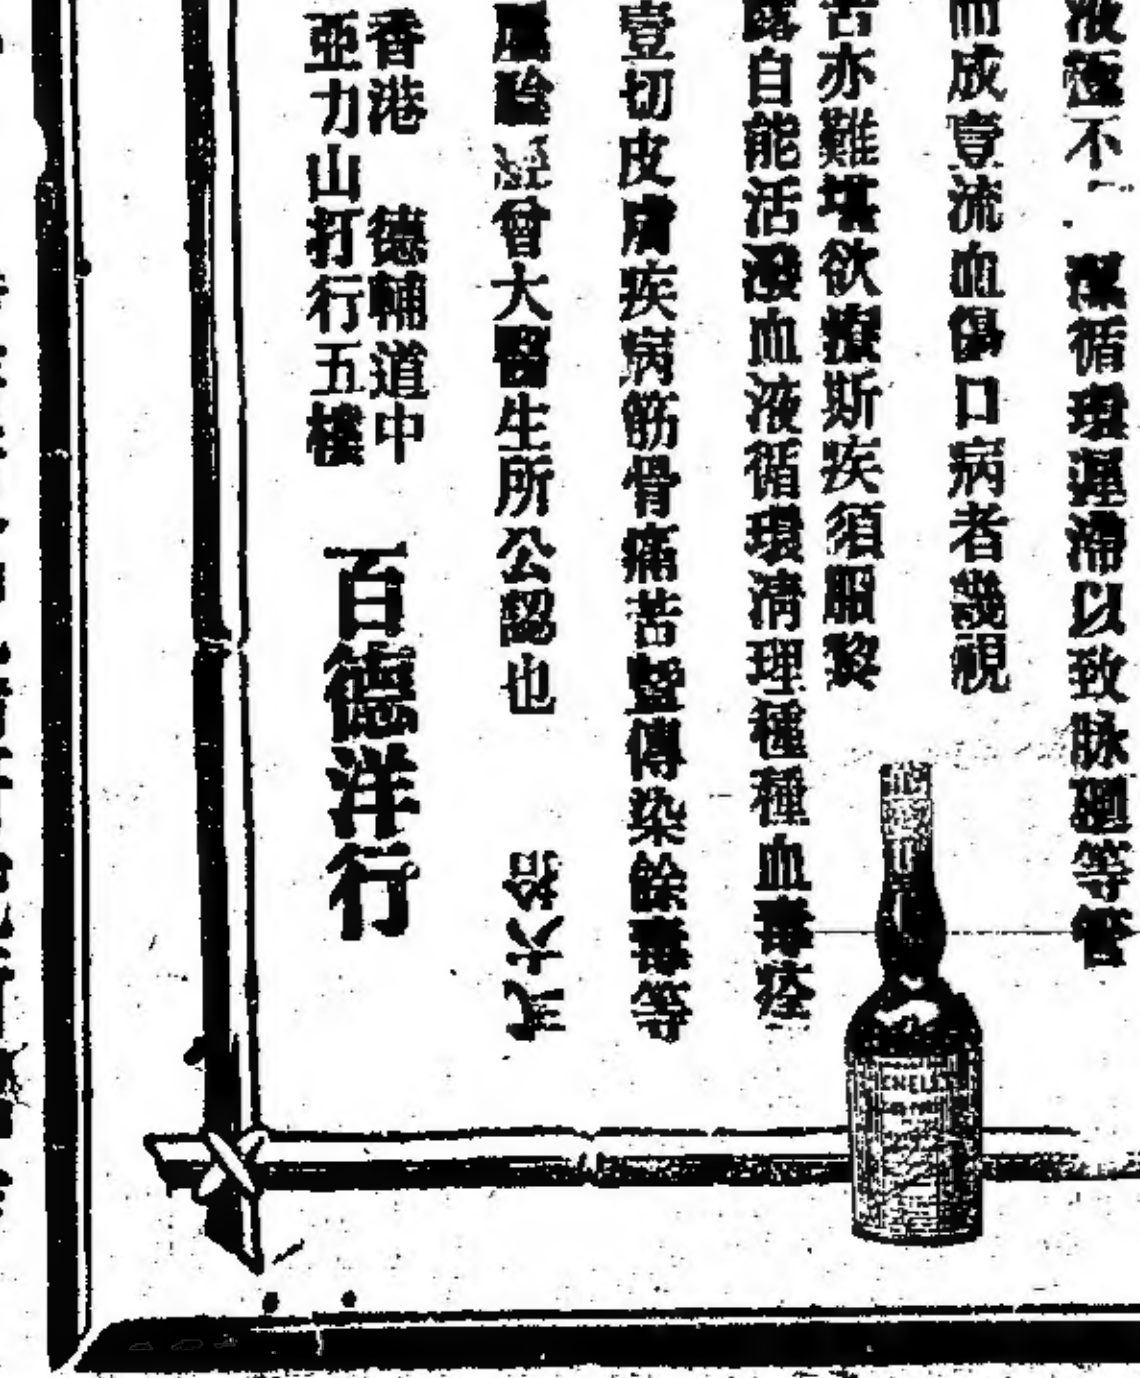 液
不
循環遲滯以致脉
等管
而成壹流血傷口病者幾視
苦亦難堪欲療斯疾須服黎
露自能活潑血液循環清理種種血毒
壹切皮膚疾病筋骨痛苦暨傳染餘毒等
屢
曾大醫生所公認也
拾六弍
香港 德輔道中
亞力山打行五樓
百德洋行